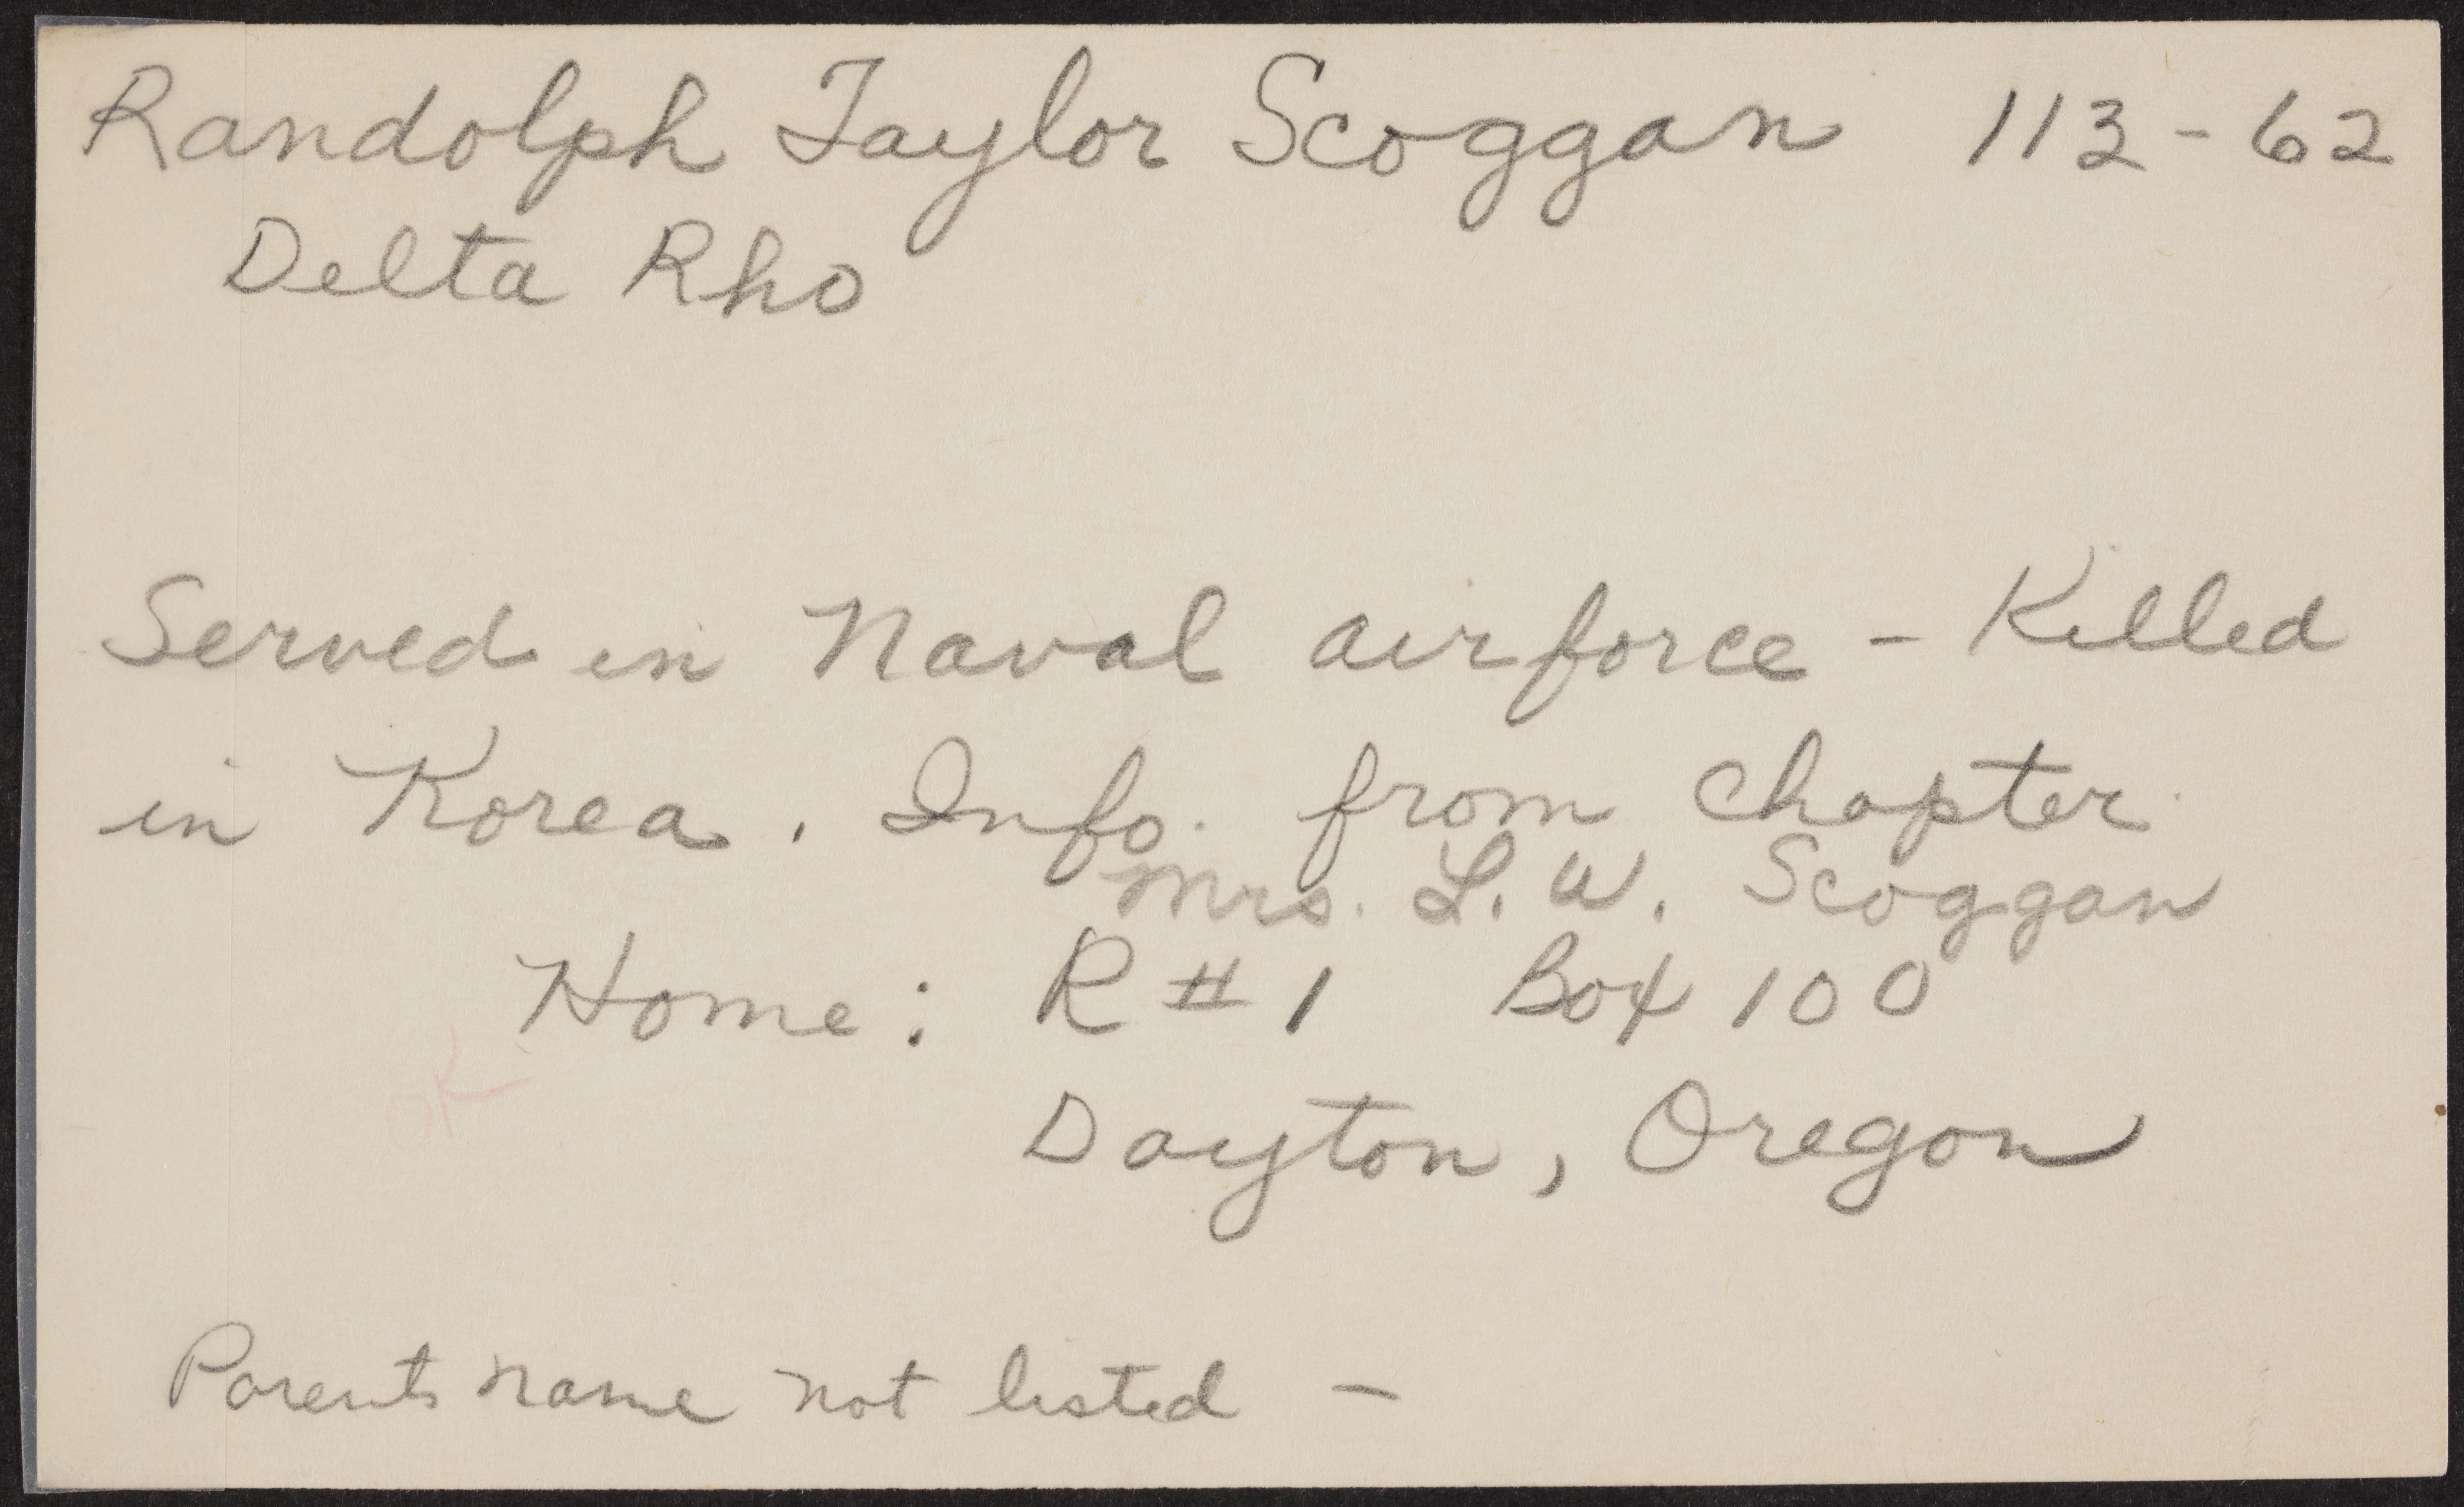 Randolph Taylor Scoggan 113-62
Delta Rho
Served in Naval airforce - Killed
in Korea. Info. from chapter
Mrs. L. W. Scoggan
Home: R #1 Box 100
OK
Dayton, Oregon
Parents name not listed -